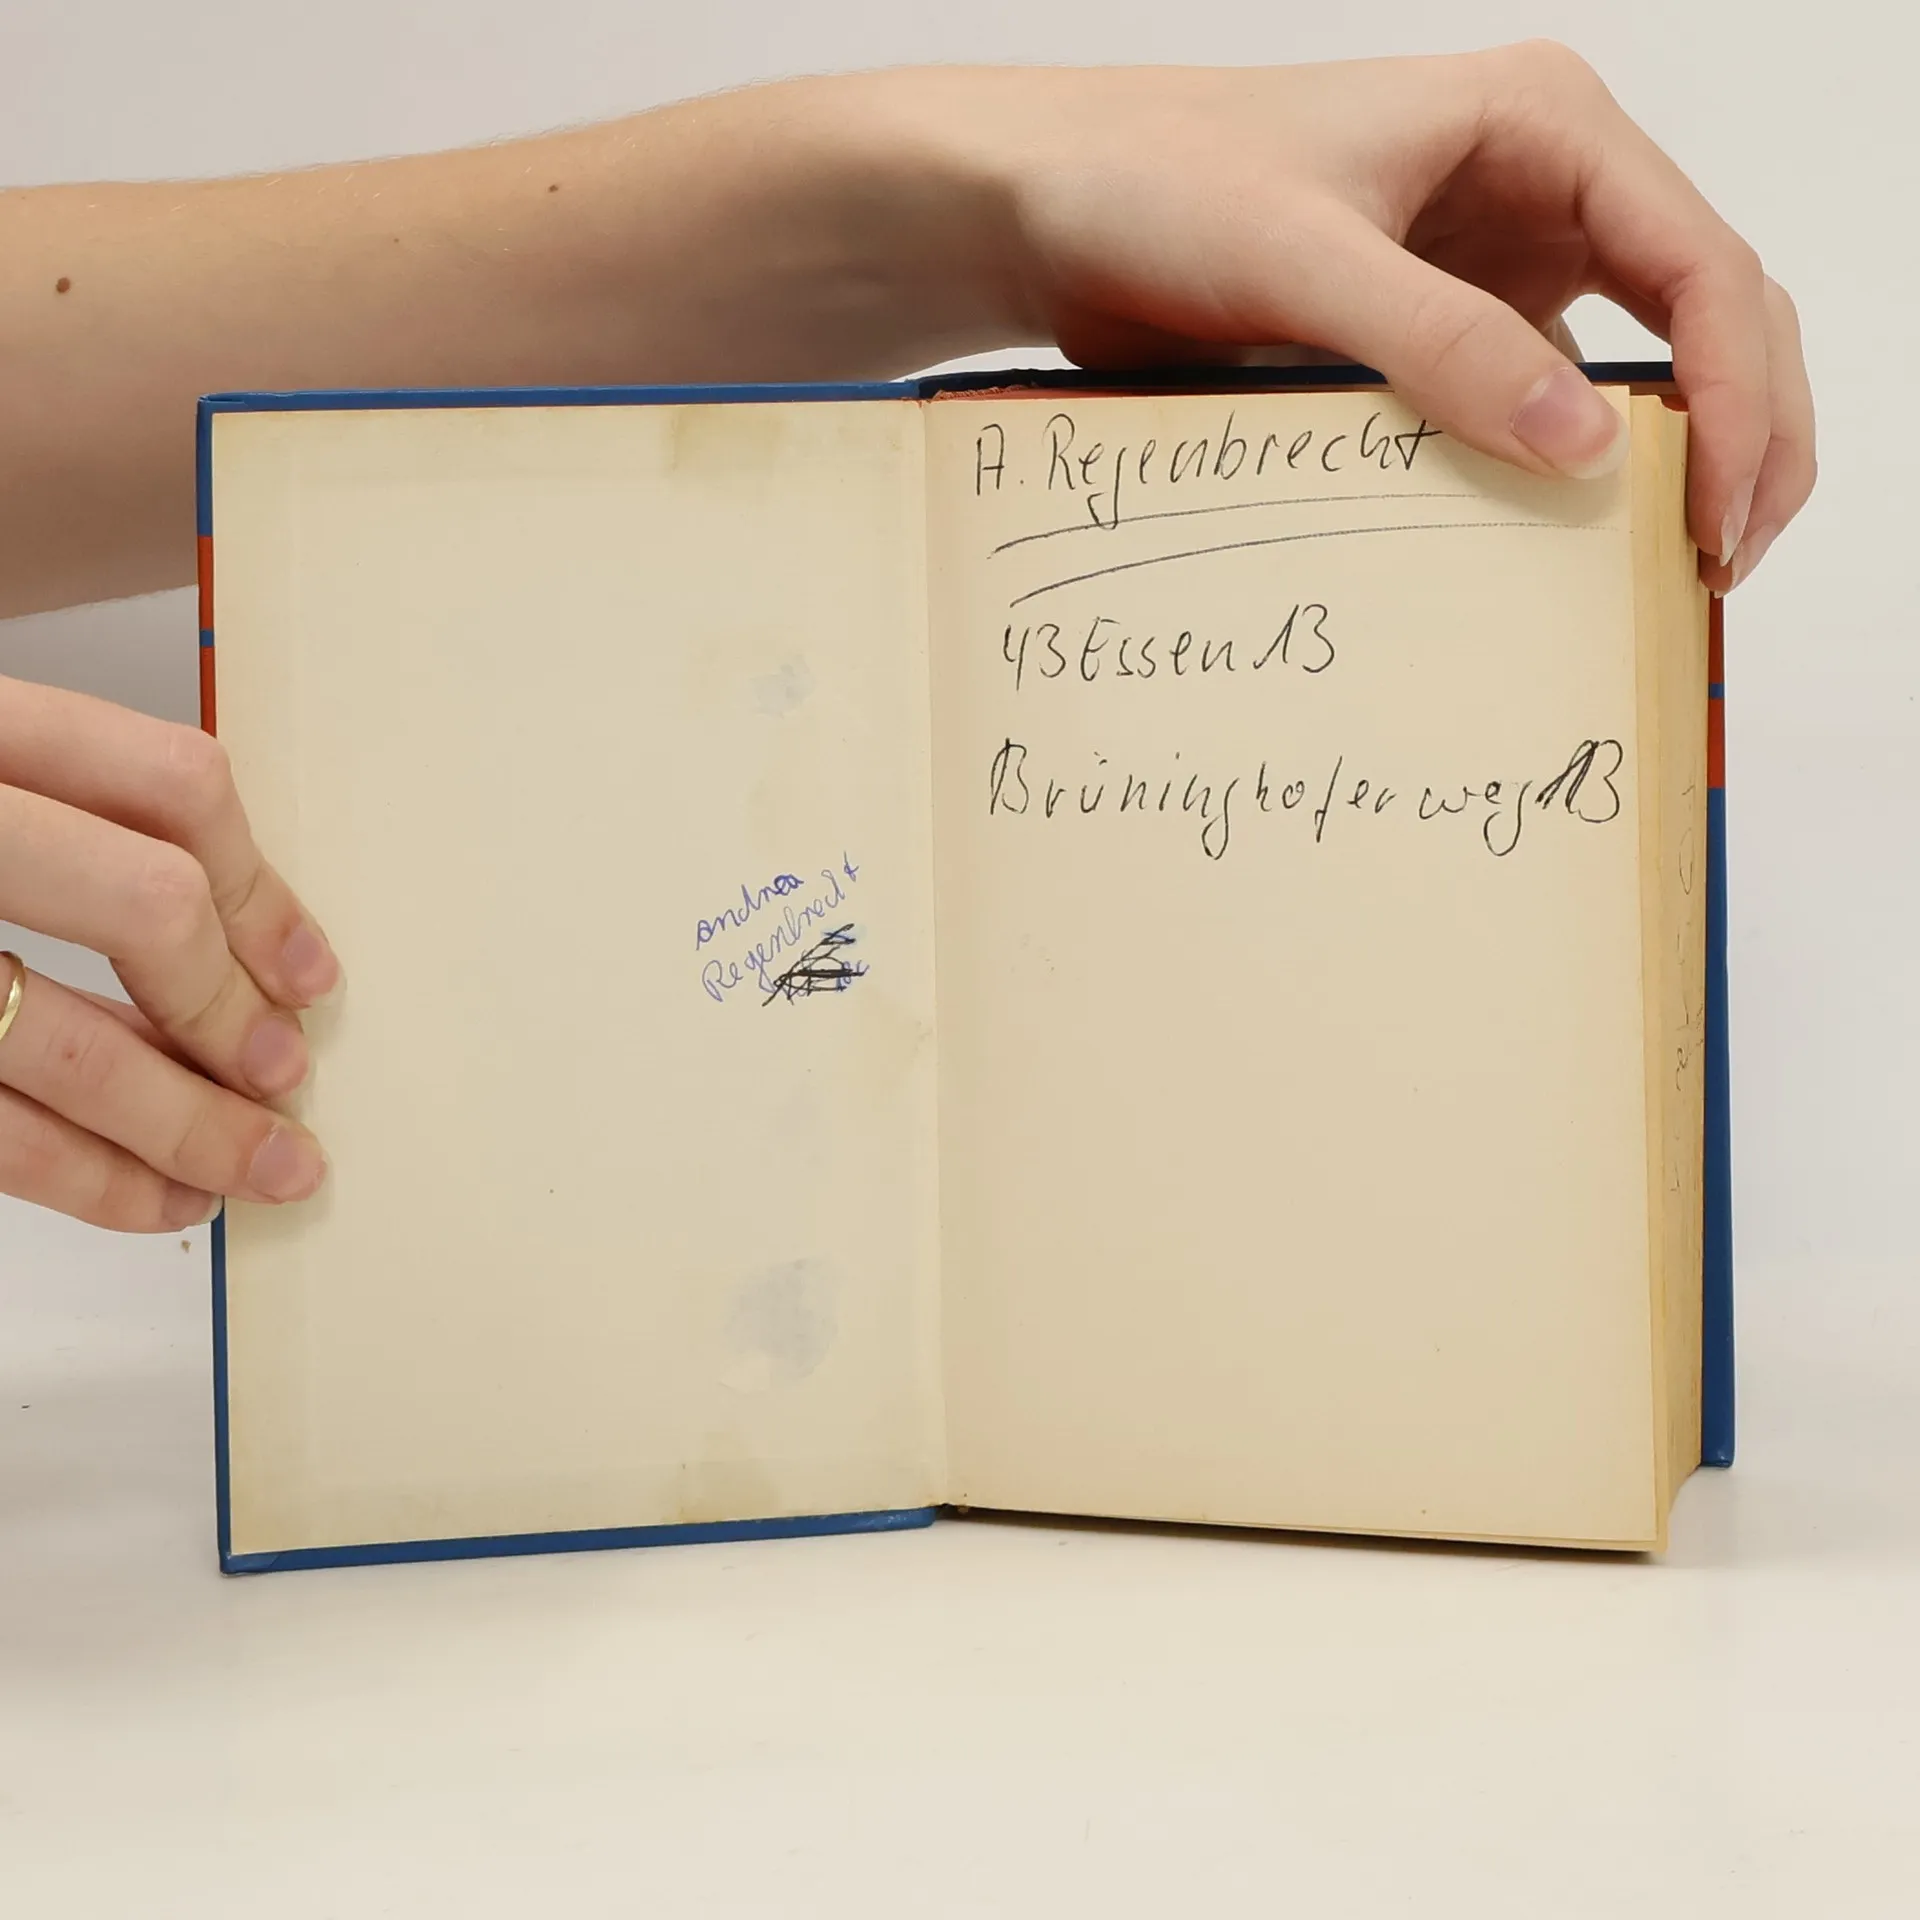 andrea
Regenbrecht
A. Regenbrecht
43 Essen 13
Brüninghofer weg 13